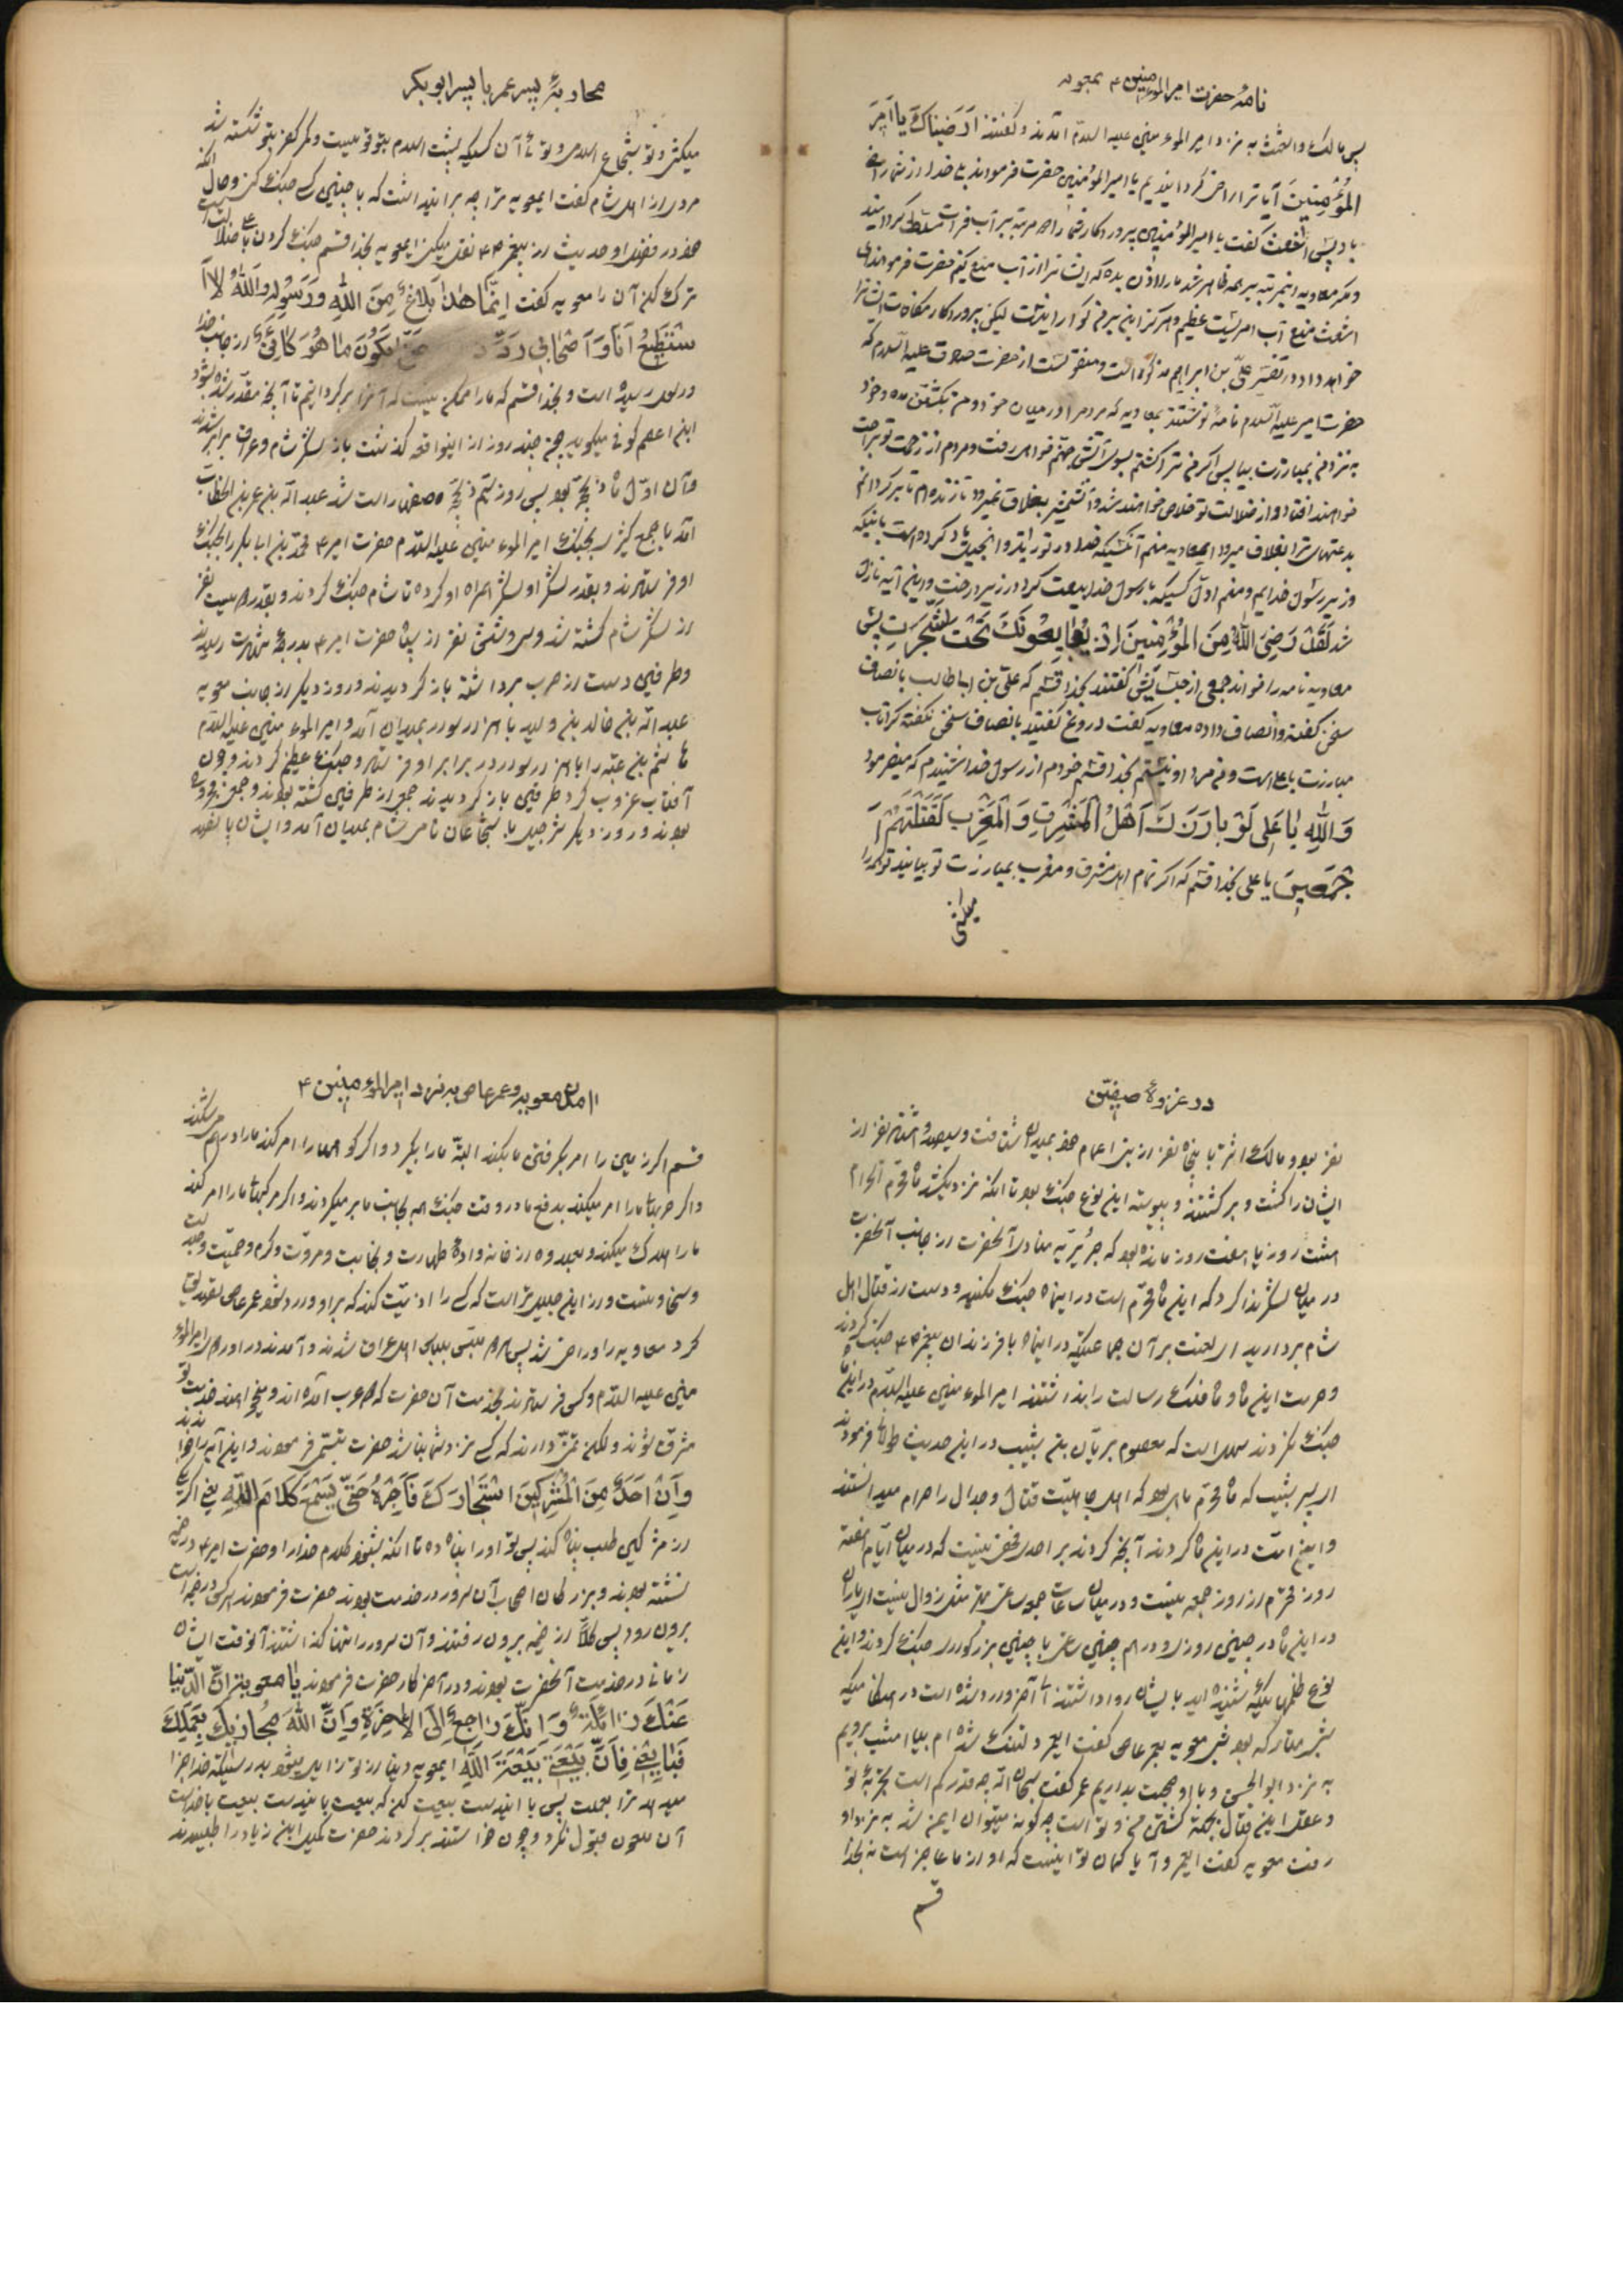 نامهٔ حضرت امیرالمؤمنین ۴ بمعویه
پس مالک و اشعث به نزد امیرالمؤمنین علیه السلام آمدند و گفتند ارضیناک یا امیر
المؤمنین آیا ترا راضی گردانیدیم یا امیرالمؤمنین حضرت فرمودند بلی خدا از شما راضی
باد پس اشعث گفت یا امیرالمؤمنین پروردگار شما را مرتبه بر آب فرات مسلط گردانید
و مکر معاویه اینمرتبه بر همه ظاهر شد ما را اذن بده که ایشانرا از آب منع کنیم حضرت فرمودند ای
اشعث منع آب امریست عظیم و هرگز این بر من گوارا نیست لیکن پروردگار مکافات ایشانرا
خواهد داد در تفسیر علی بن ابراهیم مذکور است و منقولست از حضرت صادق علیه السلام که
حضرت امیر علیه السلام نامهٔ نوشتند بمعاویه که مردم را در میان خود و من بکشتن مده و خود
به نزد من بمبارزت بیا پس اگر من ترا کشتم بسوی آتش جهنم خواهی رفت و مردم از زحمت تو براحت
خواهند افتاد و از ضلالت تو خلاص خواهند شد
بدعتهای ترا بغلاف میرود ای معاویه منم آنکسیکه خدا در تورات و انجیل یاد کرده است باینکه
وزیر رسول خدایم و منم اول کسیکه با رسول خدا بیعت کرد در زیر درخت و این آیه نازل
شد لقد رضی الله من المؤمنین اذ یبایعونک تحت الشجرت پس
معاویه نامه را خواند جمعی از گفتند بخدا قسم که علی بن ابا طالب بانصاف
سخن گفته و انصاف داده معاویه گفت دروغ گفتید بانصاف سخن نگفته کرا تاب
مبارزت با علی است و من مرد او نیستم بخدا قسم خودم از رسول خدا شنیدم که میفرمود
والله یا علی لو بارزک اهل المشرق و المغرب لقتلتهم ا
جمعین یا علی بخدا قسم که اگر تمام اهل مشرق و مغرب بمبارزت تو بیایند تو همه را
میکشی
محاربهٔ پسر عمر با پسر ابوبکر
میکشی و تو شجاع اللهی و تویی آن کسیکه پشت اسلام بتو قویست و کمر کفر بتو شکسته شد
مردی از اهل شام گفت ای معویه ترا چه بر این داشت که با چنین کسی جنگ کنی و حال آنکه
خود در فضل او حدیث از پیغمبر نقل میکنی ای معویه بخدا قسم جنگ کردن با علی ضلالت است
ترک کن آن را معویه گفت انما هذا بلاغ من الله و رسوله والله لا ا
ستطیع انا و اصحابی رد یکون ما هو کائن از جانب خدا
و رسول رسیده است و بخدا قسم که ما را ممکن نیست که آنرا برگردانیم تا آنچه مقدر شده بشود
ابن اعصم کوفی میگوید چون چند روز از اینواقعه گذشت باز لشکر شام و عراق برابر شدند
و آن اول ماه ذیحجه بود پس روز ذیحجه صفها راست شد عبد الله بن عمر بن الخطاب
آمد با جمع کثیر بجنگ امیرالمؤمنین علیه السلام حضرت امیر ۴ محمد بن ابابکر را بجنگ
او فرستادند و بقدر لشکر او لشکر همراه او کرده تا شام جنگ کردند و بقدر نفر
از لشکر شام کشته شد و سی و شش نفر از سپاه حضرت امیر ۴ بدرجهٔ شهادت رسیدند
و طرفین دست از حرب برداشته باز گردیدند و روز دیگر از جانب معویه
عبد الله بن خالد بن ولید با هزار سوار بمیدان آمد و امیرالمؤمنین علیه السلام
هاشم بن عتبه را با هزار سوار در برابر او فرستاد و جنگ عظیم کردند و چون
آفتاب غروب کرد طرفین باز گردیدند جمعی از طرفین کشته بودند و جمعی مجروح شده
بودند و روز دیگر شرجیل با شجاعان نامی شام بمیدان آمد و ایشان پانصد
در غزوهٔ صفین
نفر بود و مالک اشتر با پنجاه نفر از بنی اعمام خود بمیدان شتافت و سیصد و هشتاد نفر از
ایشان را کشت و برگشتند و پیوسته این نوع جنگ بود تا آنکه نزدیک شد ماه محرم الحرام
هشت روز یا هفت روز مانده بود که منادی آنحضرت از جانب آنحضرت
در میان لشکر ندا کرد که این ماه محرم است در اینماه جنگ مکنید و دست از قتال اهل
شام بردارید ای لعنت بر آن جماعتیکه در اینماه با فرزندان پیغمبر جنگ کردند
و حرمت این ماه و رسالت را نداشتند امیرالمؤمنین علیه السلام در این ماه
جنگ نکردند است که معصوم بریان بن شبیب در این حدیث طولانی فرمودند
ای پسر شبیب که ماه محرم ماهی بود که اهل جاهلیت قتال و جدال را حرام میدانستند
و این امت در این ماه کردند آنچه کردند بر احدی مخفی نیست که در میان ایام هفته
روز محترم از روز جمعه نیست و در میان ساعات جمعه ساعتی بهتر مثل زوال نیست ای یاران
در این ماه در چنین روزی و در هم چنین ساعتی با چنین بزرگواری جنگ کردند و این
نوع ظلمها که شنیده اید بایشان روا داشتند تا آخر وارد شده است در هنگامیکه
بنای متارکه بود شبی معویه بعمر عاص گفت ای عمر دلتنگ شده ام بیا امشب برویم
به نزد ابوالحسن و با او صحبت بداریم عمر گفت سبحان الله چه قدر کم است تجربهٔ تو
و عقل تو این قتال بجهة کشتن من و تو است چه گونه میتوان ایمن شد به نزد او
رفت معویه گفت ای عمر و آیا گمان تو اینست که او از ما عاجز است نه بخدا
قسم
آمدن معویه و عمر عاص به نزد امیرالمؤمنین ۴
قسم اگر زمین را امر بگرفتن ما بکند البته ما را بگیرد و اگر کوهها را امر کند ما را در هم شکند
و اگر حربها ما را امر میکند بدفع ما در وقت جنگ همه بجانب ما بر میگردند و اگر مرکبها ما را امر کند
ما را هلاک میکند و بعد وه از خانوادهٔ طهارت و نجابت و مروت و کرم و حمیت و
و سخاوتست و از این جلیل تر است که کسی را اذیت کند که بر او وارد شود عمر عاص تصدیق
کرد معاویه را و راضی شد پس هر دو ملبس بلباس اهل عراق شدند و آمدند در امیرالمؤ
منین علیه السلام و کس فرستادند بخدمت آن حضرت که دو عرب آمده اند و میخواهند خدمت تو
مشرف شوند و لکن عزت دارند که کسی نزد شما نباشد حضرت تبسم فرمودند و این آیه را خواندند
و ان احد من المشرکین استجارک فاجره حتی یسمع کلام الله یعنی اگر یکی
از مشرکین طلب پناه کند پس تو او را پناه ده تا آنکه بشنود کلام خدا را و حضرت امیر ۴ در خیمه
نشسته بودند و بزرگان اصحاب آن سرور در خدمت بودند حضرت فرمودند هر کس در خیمه است
بیرون رود پس کلاً از خیمه بیرون رفتند و آن سرور را تنها گذاشتند آنوقت ایشان
زمانی در خدمت آنحضرت بودند و در آخر کار حضرت فرمودند یا معویة ان الدنیا
عنک زائلة و انک راجع الی الاخرة و ان الله مجازیک بعملک
فبایعنی فان بیعتی بیعة الله ای معویه دنیا از تو زایل میشود بدرستیکه خدا جزا
میدهد ترا بعملت پس با این دست بیعت کن که بیعت با این دست بیعت با خداست
آن ملعون قبول نکرد و چون خواستند برگردند حضرت کمیل ابن زیاد را طلبیدند